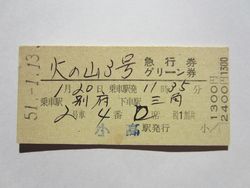 火の山3号 急行券 グリーン券
1月20日 乗車駅発 11時35分
乗車駅 別府 下車駅 三角
2号車 4番 D席
駅発行
51.-1.13
1300円 2400円 1300